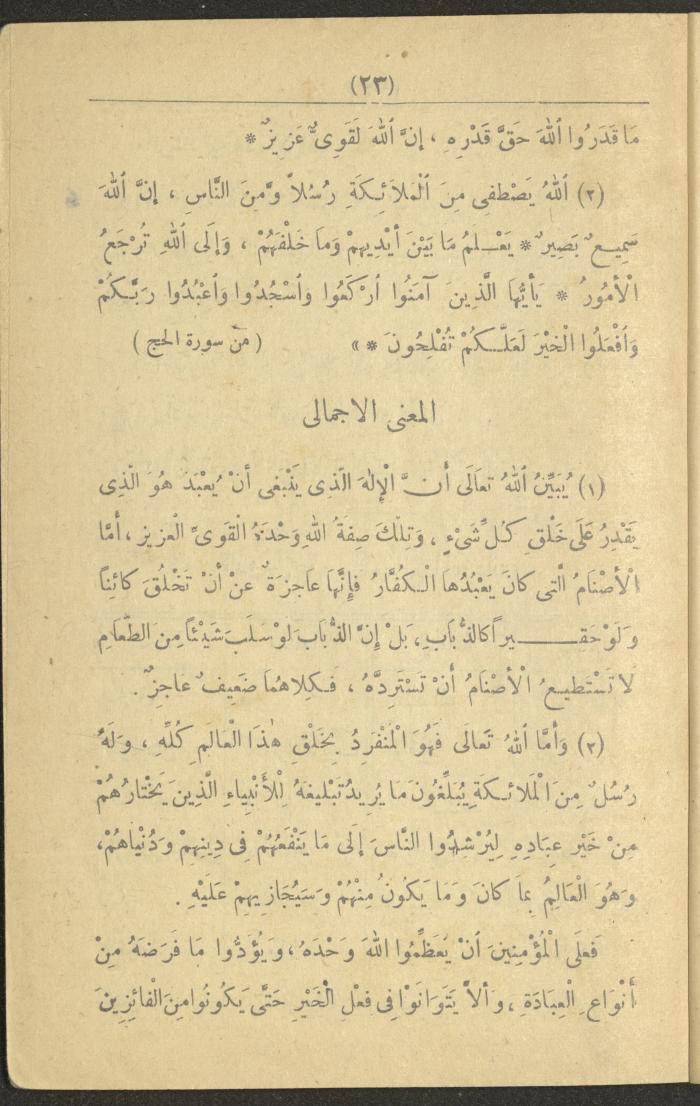 (٢٣)
مَا قَدَرُوا ٱللهَ حَقَّ قَدْرِهِ ، إِنَّ ٱللهَ لَقَوِىٌّ عَزِيزٌ *
(٢) ٱللهُ يَصْطَفِى مِنَ ٱلْمَلَائِكَةِ رُسُلاً وَّمِنَ النَّاسِ ، إِنَّ ٱللهَ
سَمِيعٌ بَصِيرٌ * يَعْلَمُ مَا بَيْنَ أَيْدِيهِمْ وَمَا خَلْفَهُمْ ، وَإِلَى ٱللهِ تُرْجَعُ
الْأُمُورُ * يَأَيُّهَا الَّذِينَ آمَنُوا ٱرْكَعُوا وَٱسْجُدُوا وَٱعْبُدُوا رَبَّكُمْ
وَٱفْعَلُوا الْخَيْرَ لَعَلَّكُمْ تُفْلِحُونَ * » ( من سورة الحج )
المعنى الاجمالى
(١) يُبَيِّنُ ٱللهُ تعَالَى أَنَّ الْإِلهَ الَّذِى يَنْبَغِى أَنْ يُعْبَدَ هُوَ الَّذِى
يَقْدِرُ عَلَى خَلْقِ كُلِّ شَىْءٍ ، وَتِلْكَ صِفَةُ اللهِ وَحْدَهُ الْقَوِىِّ الْعزِيزِ ، أَمَّا
الْأَصْنَامُ الَّتِى كَانَ يَعْبُدُهَا الْكُفَّارُ فَإِنَّهَا عَاجِزَةٌ عَنْ أَنْ تَخْلُقَ كائِنًا
وَلَوْ حَقِيراً كَالذُّبَابِ، بَلْ إِنَّ الذُّبَابَ لَوْ سَلَبَ شَيْئًا مِنَ الطَّعَامِ
لَا تَسْتَطِيعُ الْأَصْنَامُ أَنْ تَسْتَرِدَّهُ ، فَكِلَاهُمَا ضَعِيفٌ عَاجِزٌ .
(٢) وَأَمَّا ٱللهُ تَعَالَى فَهُوَ الْمُنْفَرِدُ بِخَلْقِ هٰذَا الْعَالَمِ كُلِّهِ ، وَلَهُ
رُسُلٌ مِنَ الْمَلَائِكَةِ يُبَلِّغُونَ مَا يُرِيدُ تَبْلِيغَهُ لِلْأَنْبِيَاءِ الَّذِينَ يَخْتَارُهُمْ
مِنْ خَيْرِ عِبَادِهِ لِيُرْشِدُوا النَّاسَ إِلَى مَا يَنْفَعُهُمْ فِى دِينِهِمْ وَدُنْيَاهُمْ،
وَهُوَ الْعَالِمُ بِمَا كَانَ وَمَا يَكُونُ مِنْهُمْ وَسَيُجَازِيهِمْ عَلَيْهِ .
فَعَلَى الْمُؤْمِنِينَ أَنْ يُعَظِّمُوا اللهَ وَحْدَهُ ، وَيُؤَدُّوا مَا فَرَضَهُ مِنْ
أَنْوَاعِ الْعِبَادَةِ ، وَأَلاَّ يَتَوَانَوْا فِى فعْلِ الْخَيْرِ حَتَّى يَكُونُوا مِنَ الْفَائِزِينَ